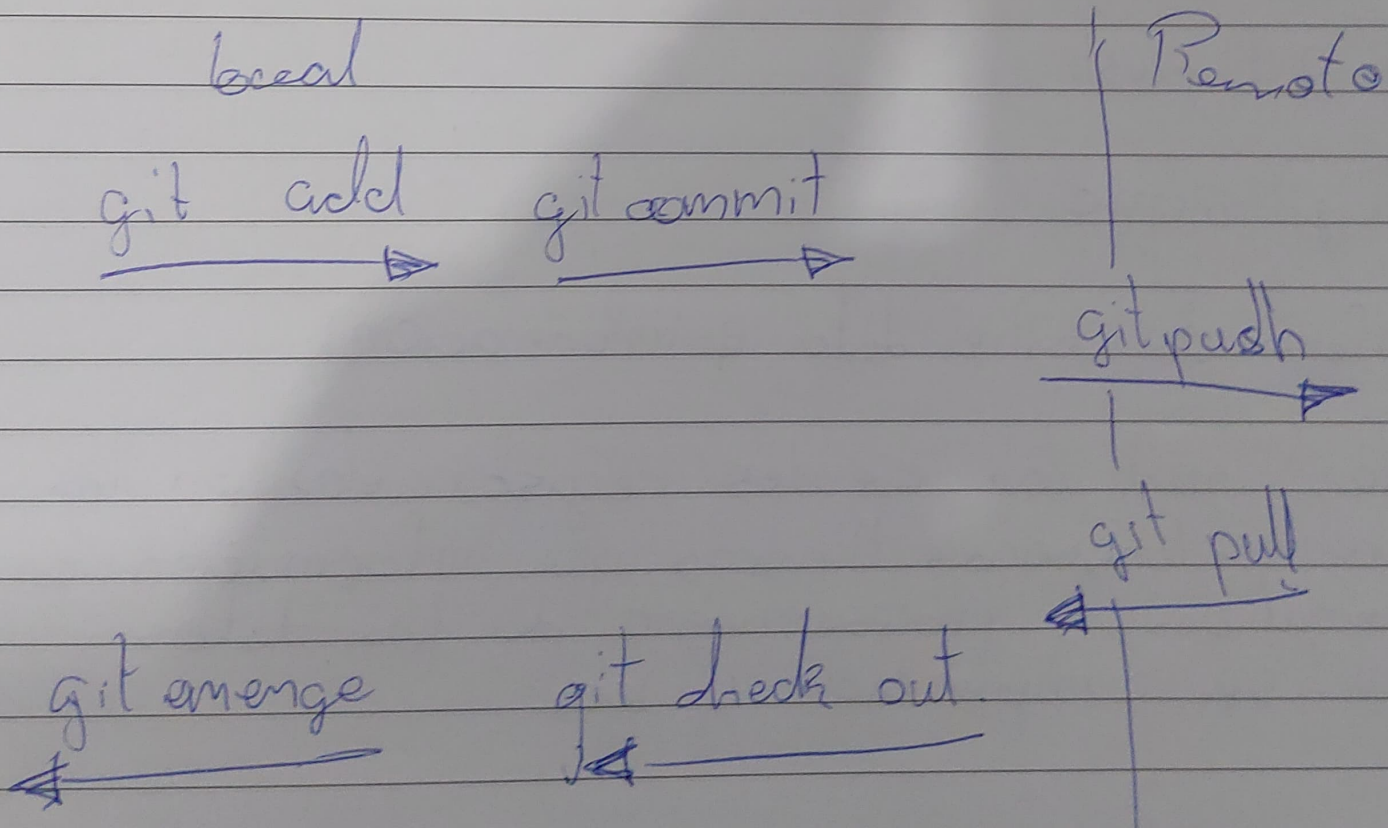 local Remoto
git add git commit
git push
git pull
git merge git check out